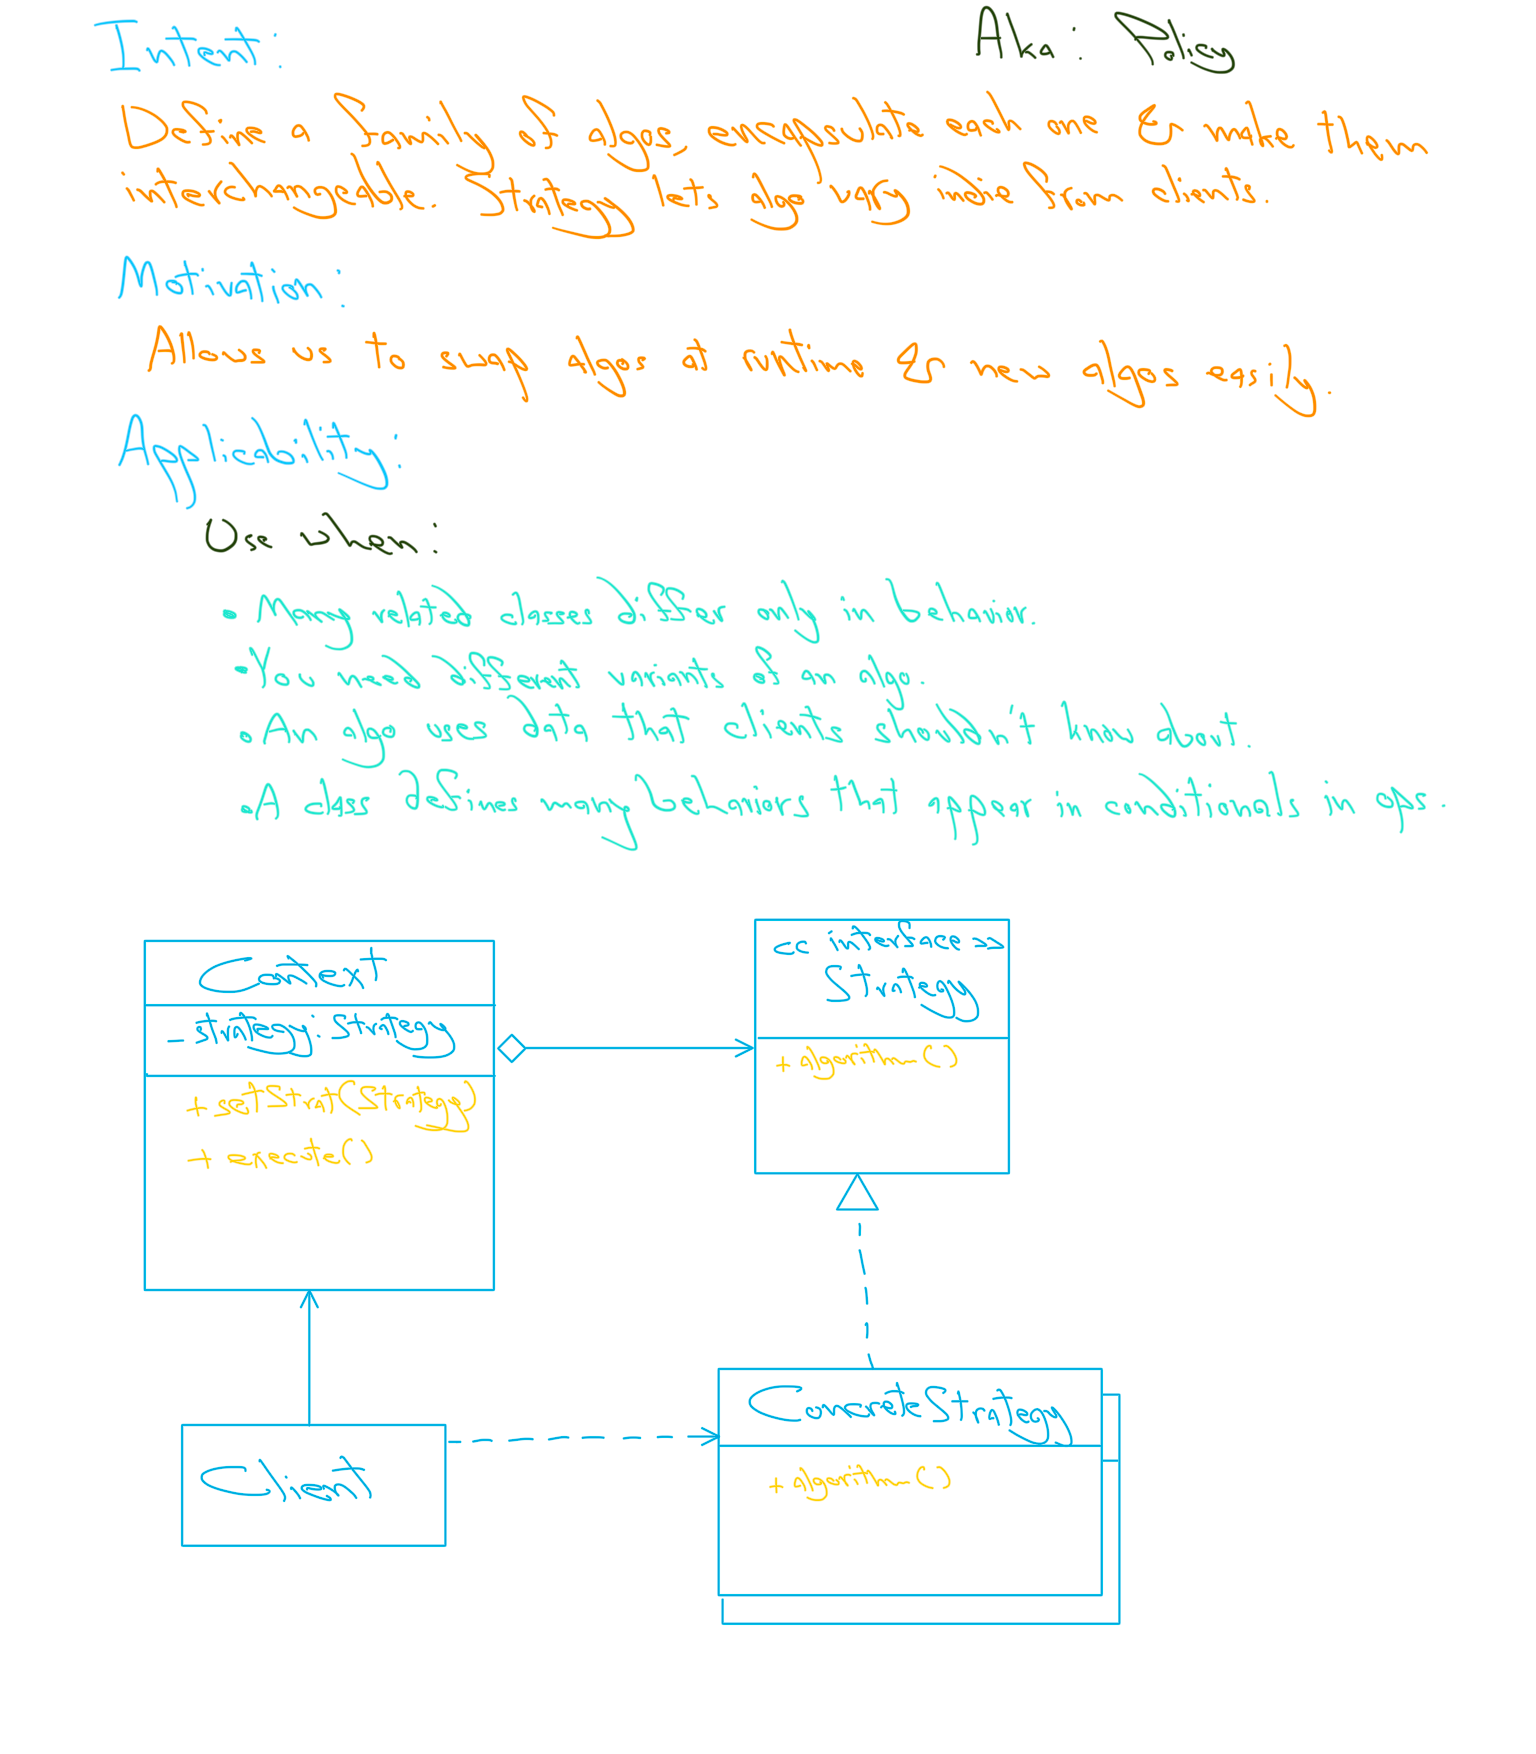 Intent:
Aka: Policy
Define a family of algos, encapsulate each one & make them
interchangeable. Strategy lets algo vary indie from clients.
Motivation:
Allows us to swap algos at runtime & new algos easily.
Applicability:
Use when:
• Many related classes differ only in behavior.
• You need different variants of an algo.
• An algo uses data that clients shouldn't know about.
• A class defines many behaviors that appear in conditionals in ops.
Context
- strategy: Strategy
+ setStrat(Strategy)
+ execute()
<< interface >>
Strategy
+ algorithm()
Client
ConcreteStrategy
+ algorithm()